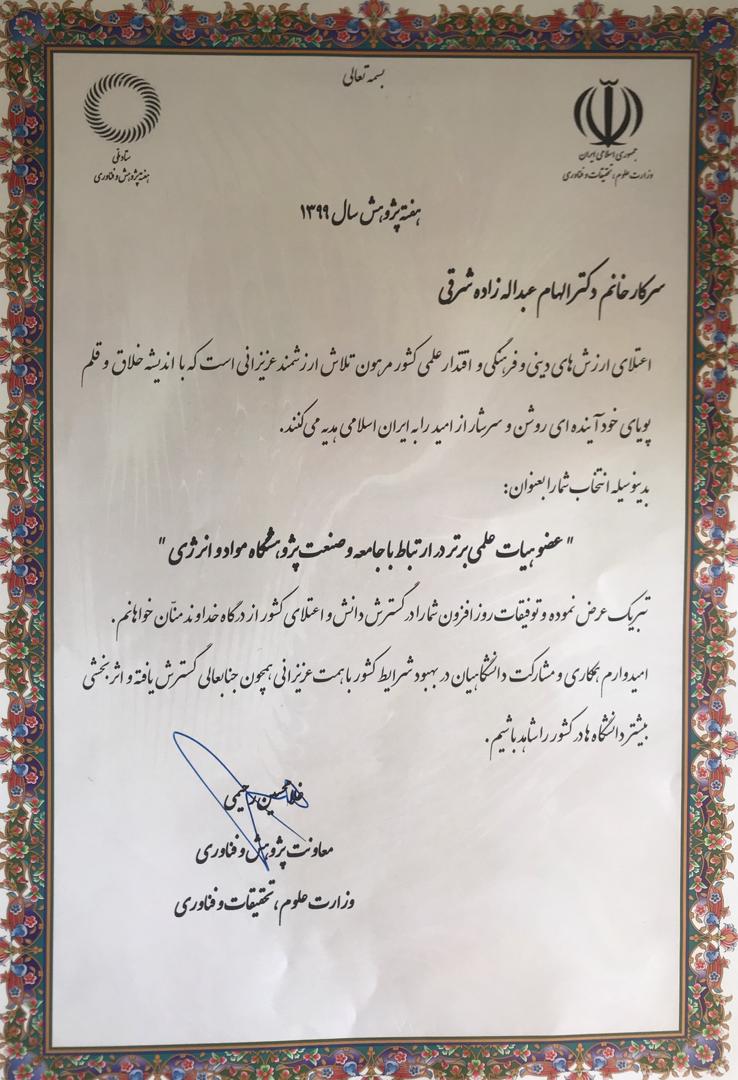 بسمه تعالی
جمهوری اسلامی ایران
وزارت علوم، تحقیقات و فناوری
ستاد ملی
هفته پژوهش و فناوری
هفته پژوهش سال ۱۳۹۹
سرکار خانم دکتر الهام عبداله زاده شرقی
اعتلای ارزش های دینی و فرهنگی و اقتدار علمی کشور مرهون تلاش ارزشمند عزیزانی است که با اندیشه خلاق و قلم
پویای خود آینده ای روشن و سرشار از امید را به ایران اسلامی هدیه می کنند.
بدینوسیله انتخاب شما را بعنوان:
" عضو هیات علمی برتر در ارتباط با جامعه و صنعت پژوهشگاه مواد و انرژی "
تبریک عرض نموده و توفیقات روز افزون شما را در گسترش دانش و اعتلای کشور از درگاه خداوند منّان خواهانم.
امیدوارم همکاری و مشارکت دانشگاهیان در بهبود شرایط کشور با همت عزیزانی همچون جنابعالی گسترش یافته و اثر بخشی
بیشتر دانشگاه ها در کشور را شاهد باشیم.
غلامحسین رحیمی
معاونت پژوهش و فناوری
وزارت علوم، تحقیقات و فناوری